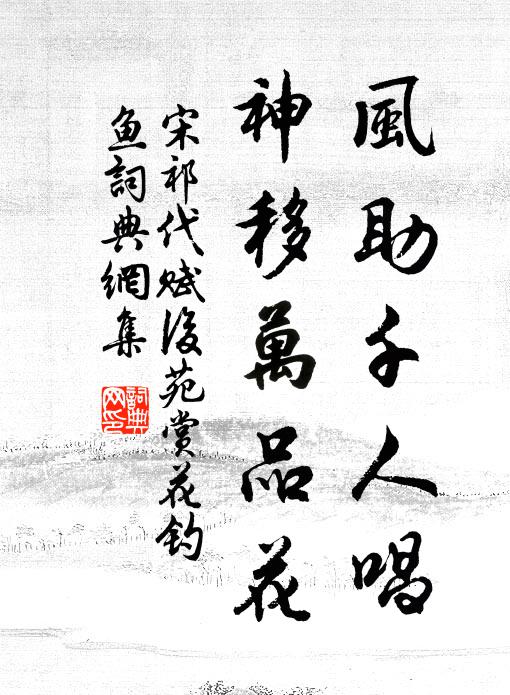 風助千人唱
神移萬品花
宋祁代賦後苑賞花釣
魚詞典網集
詞典
网印